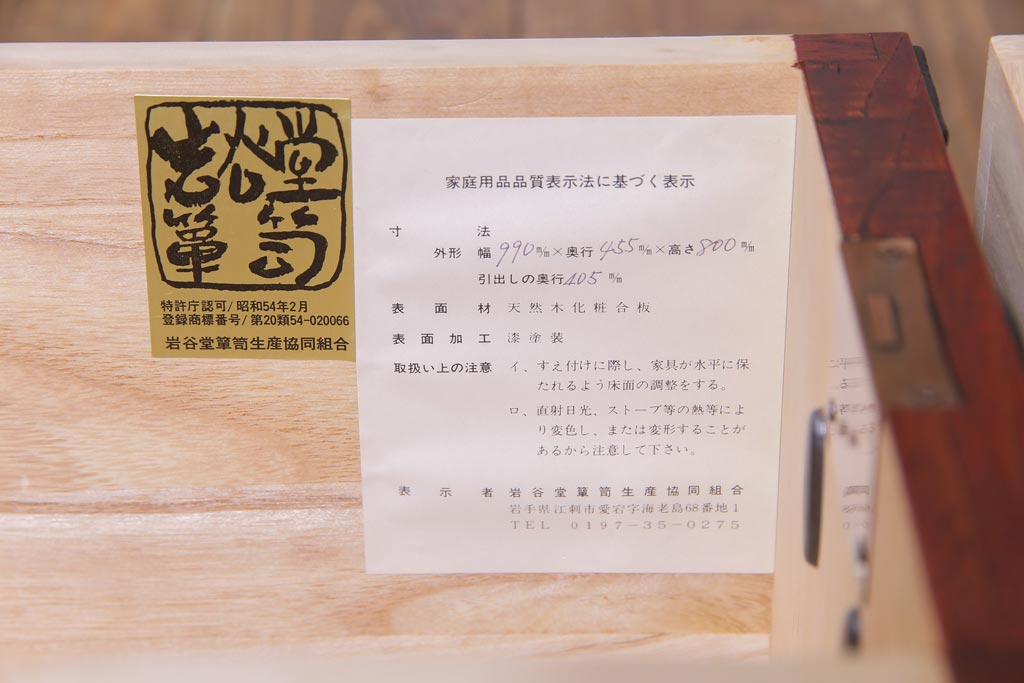 岩谷堂
簞笥
特許庁認可/昭和54年2月
登録商標番号/第20類54-020066
岩谷堂簞笥生産協同組合
家庭用品品質表示法に基づく表示
寸法
外形 幅990㎜×奥行455㎜×高さ800㎜
引出しの奥行405㎜
表面材 天然木化粧合板
表面加工 漆塗装
取扱い上の注意 イ、すえ付けに際し、家具が水平に保
たれるよう床面の調整をする。
ロ、直射日光、ストーブ等の熱等によ
り変色し、または変形することが
あるから注意して下さい。
表示者 岩谷堂簞笥生産協同組合
岩手県江刺市愛宕字海老島68番地1
TEL 0197-35-0275